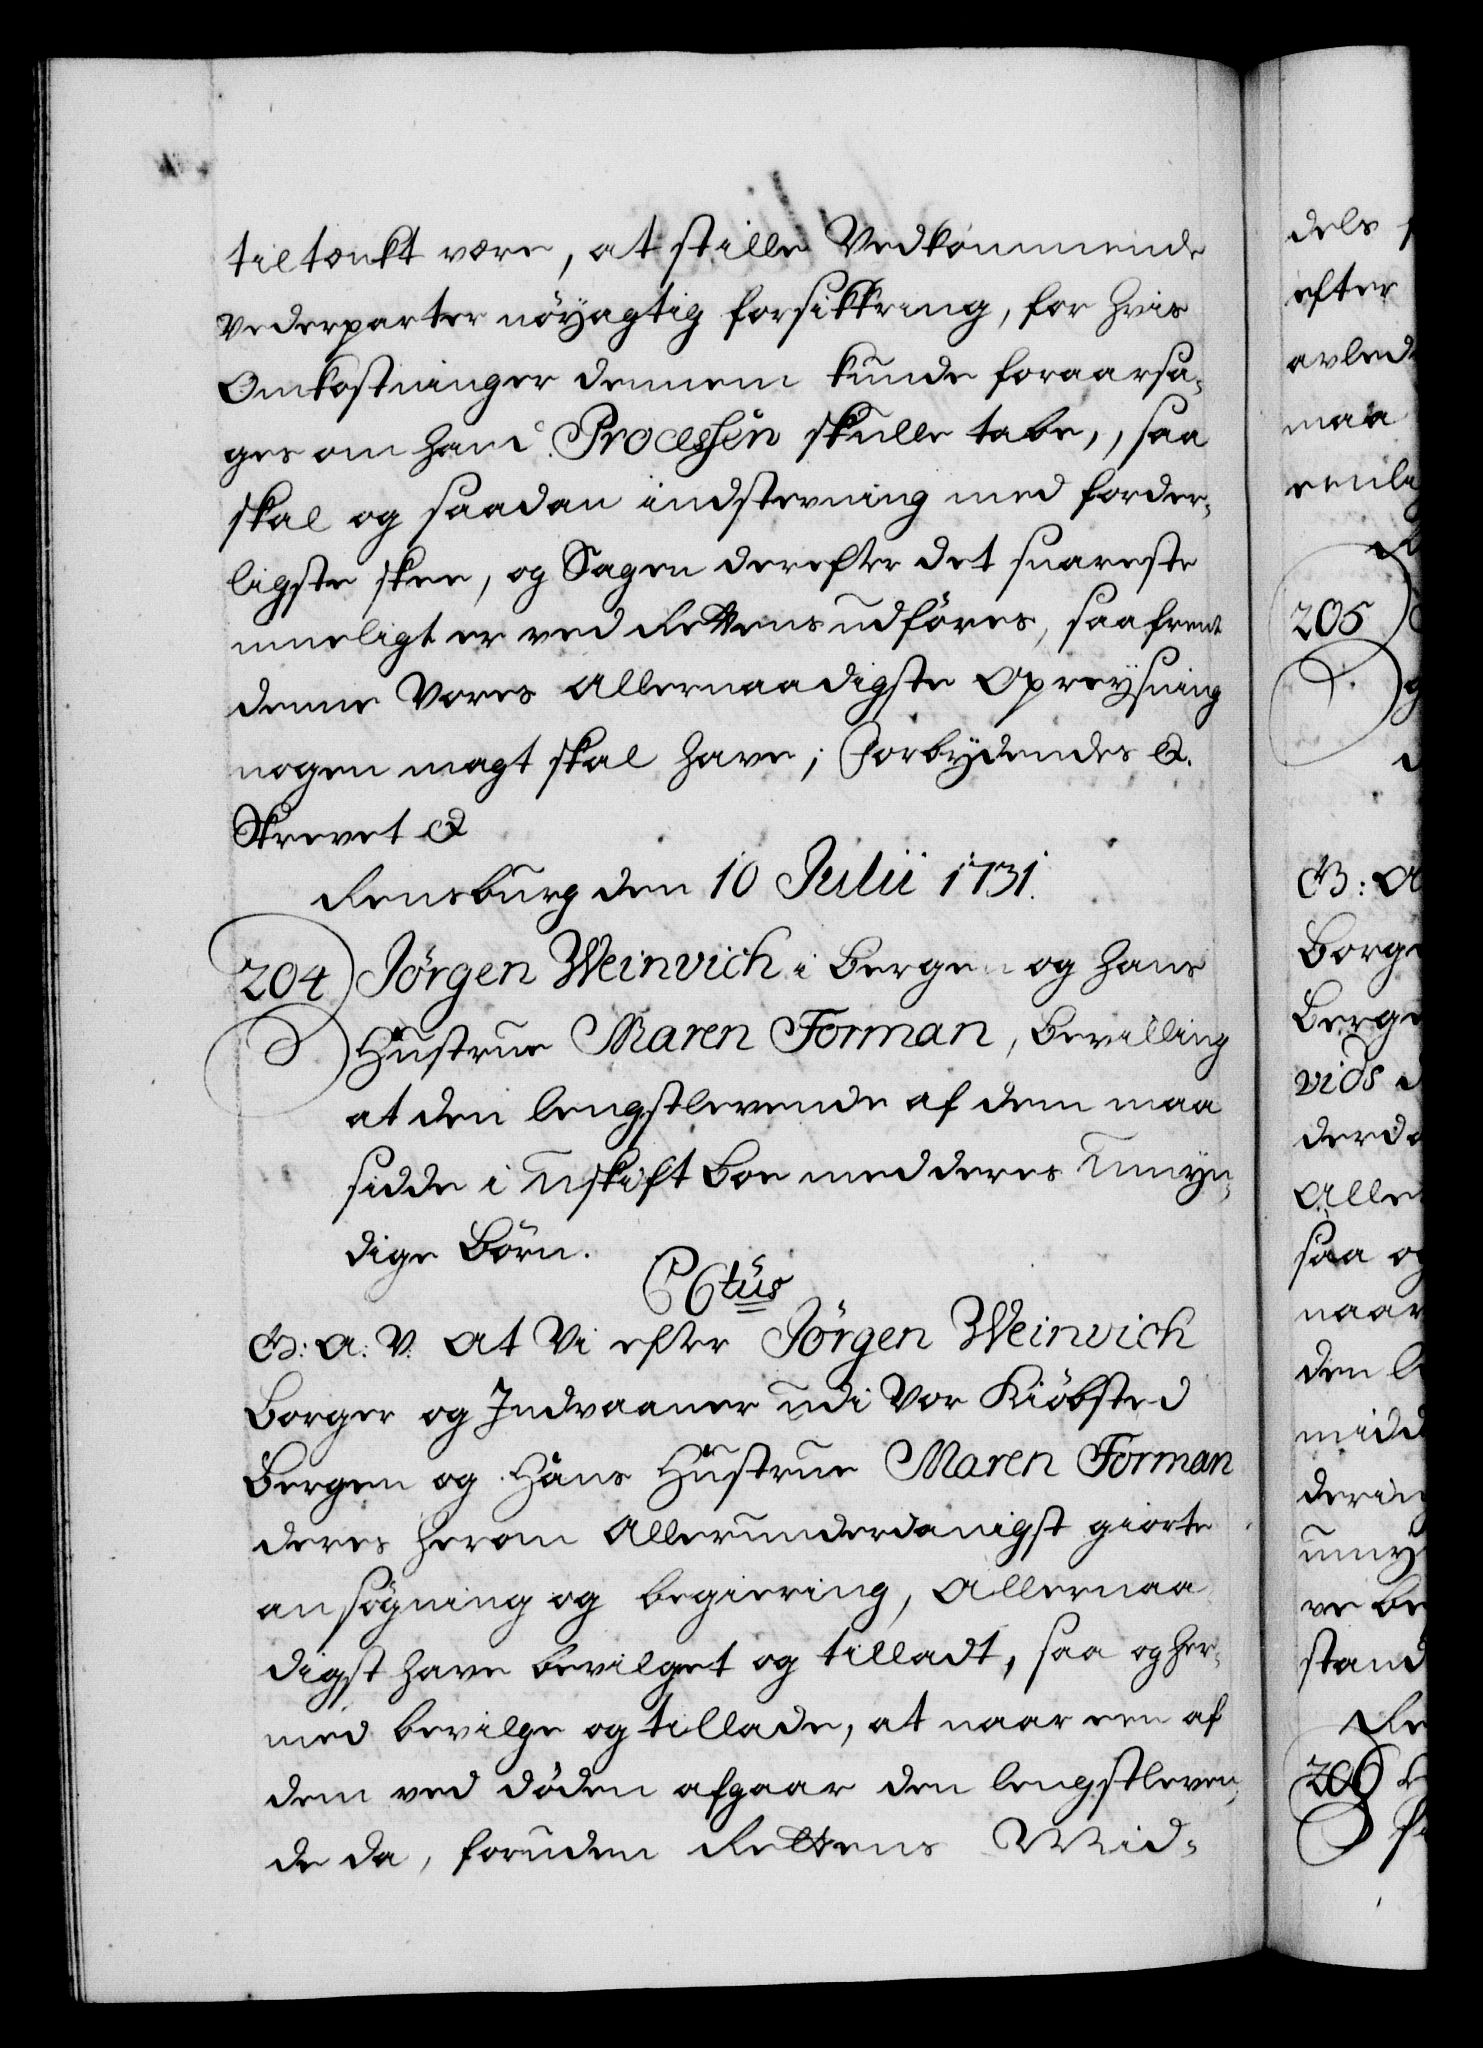 tiltænkt være, at stille Vedkommende
Vederparter nöyagtig forsikkring, for hvis
Omkostninger dennem kunde foraarsa-
ges om hand Processen skulle tabe,, saa
skal og saadan indstevning med forder-
ligste skee, og Sagen derefter det snareste
mueligt er ved Rettens udföres, saafremt
denne Vores Allernaadigste Opreysning
nogen magt skal have; Forbydendes &.
Skrevet &
Rensburg den 10 Julii 1731.
204 Jörgen Weinvich i Bergen og hans
Hustrue Maren Forman, Bevilling
at den lengstlevende af dem maa
sidde i Uskift Boe med deres Umyn-
dige Börn.
G: A: V. At Vi efter Jörgen Weinvich
Borger og Indvaaner udi Vor Kiöbsted
Bergen og Hans Hustrue Maren Forman
deres herom Allerunderdanigst giorte
ansögning og begiering, Allernaa
digst have bevilget og tilladt, saa og her-
med bevilge og tillade, at naar een af
dem ved döden afgaar den lengstleven-
de da, foruden Rettens Mid-
dels
efter
maa
205
G: A
vids
saa og
naar
206